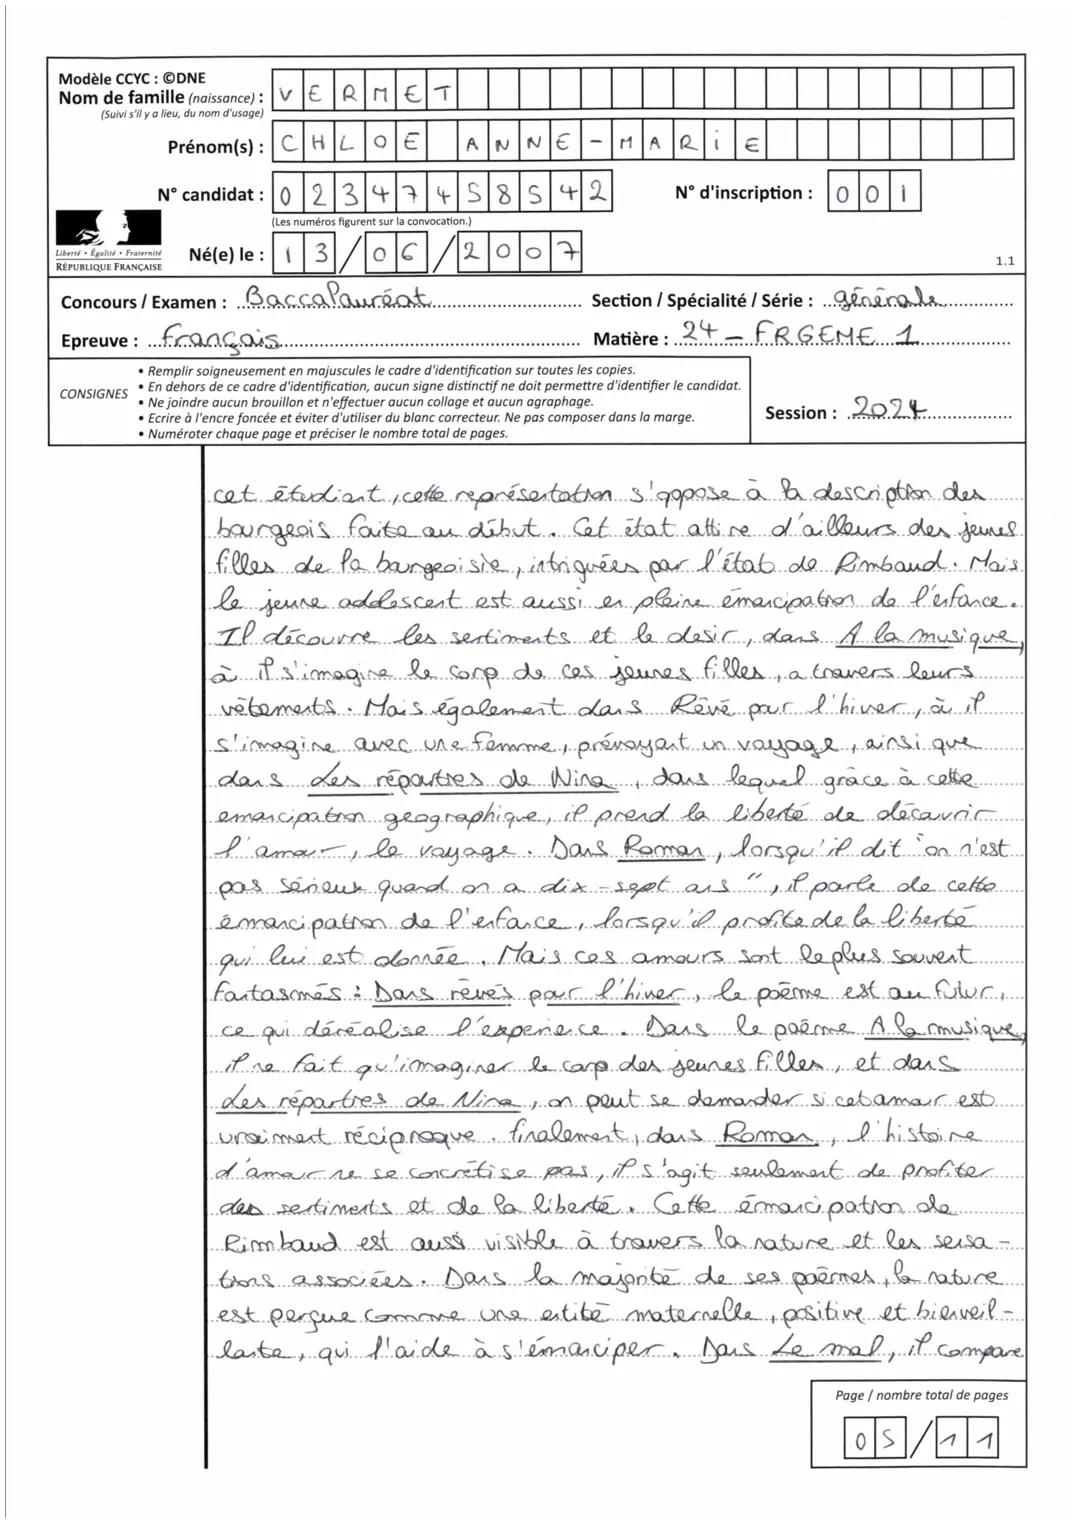 Modèle CCYC : ©DNE
Nom de famille (naissance) : VERMET
(Suivi s'il y a lieu, du nom d'usage)
Prénom(s) : CHLOE ANNE-MARiE
N° candidat : 02347458542 N° d'inscription : 001
(Les numéros figurent sur la convocation.)
Liberté • Égalité • Fraternité
RÉPUBLIQUE FRANÇAISE
Né(e) le : 13/06/2007
1.1
Concours / Examen : Baccalauréat Section / Spécialité / Série : générale
Epreuve : français Matière : 24 - FRGEME 1
CONSIGNES
• Remplir soigneusement en majuscules le cadre d'identification sur toutes les copies.
• En dehors de ce cadre d'identification, aucun signe distinctif ne doit permettre d'identifier le candidat.
• Ne joindre aucun brouillon et n'effectuer aucun collage et aucun agraphage.
• Ecrire à l'encre foncée et éviter d'utiliser du blanc correcteur. Ne pas composer dans la marge.
• Numéroter chaque page et préciser le nombre total de pages.
Session : 2024
cet étudiant, cette représentation s'oppose à la description des
bourgeois faite au début. Cet état attire d'ailleurs des jeunes
filles de la bourgeoisie, intriguées par l'état de Rimbaud. Mais
le jeune addescent est aussi en pleine émancipation de l'enfance.
Il découvre les sentiments et le desir, dans A la musique,
où il s'imagine le corp de ces jeunes filles, a travers leurs
vêtements. Mais également dans Rêvé pour l'hiver, où il
s'imagine avec une femme, prévoyant un voyage, ainsi que
dans Les réparties de Nina, dans lequel grâce à cette
emancipation geographique, il prend la liberté de découvrir
l'amour, le voyage. Dans Roman, lorsqu'il dit "on n'est
pas sérieux quand on a dix-sept ans", il parle de cette
émancipation de l'enfance, lorsqu'il profite de la liberté
qui lui est donnée. Mais ces amours sont le plus souvent
fantasmés : Dans rêvés pour l'hiver, le poème est au futur,
ce qui déréalise l'experience. Dans le poème A la musique,
il ne fait qu'imaginer le corp des jeunes filles, et dans
Les réparties de Nina, on peut se demander si cet amour est
vraiment réciproque. finalement, dans Roman, l'histoire
d'amour ne se concrétise pas, il s'agit seulement de profiter
des sentiments et de la liberté. Cette émancipation de
Rimbaud est aussi visible à travers la nature et les sensa-
tions associées. Dans la majorité de ses poèmes, la nature
est perçue comme une entité maternelle, positive et bienveil-
lante, qui l'aide à s'émanciper. Dans Le mal, il compare
Page / nombre total de pages
05/11